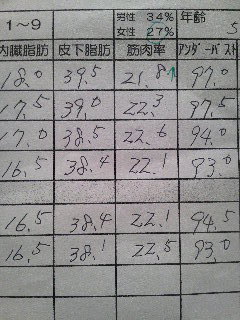 1～9 男性 34% 年齢
女性 27% 5
内臓脂肪 皮下脂肪 筋肉率 アンダーバスト
18.0 39.5 21.8↑ 97.0
17.5 39.0 22.3 97.5
17.0 38.5 22.6 94.0
16.5 38.4 22.1 93.0
16.5 38.4 22.1 94.5
16.5 38.1 22.5 93.0